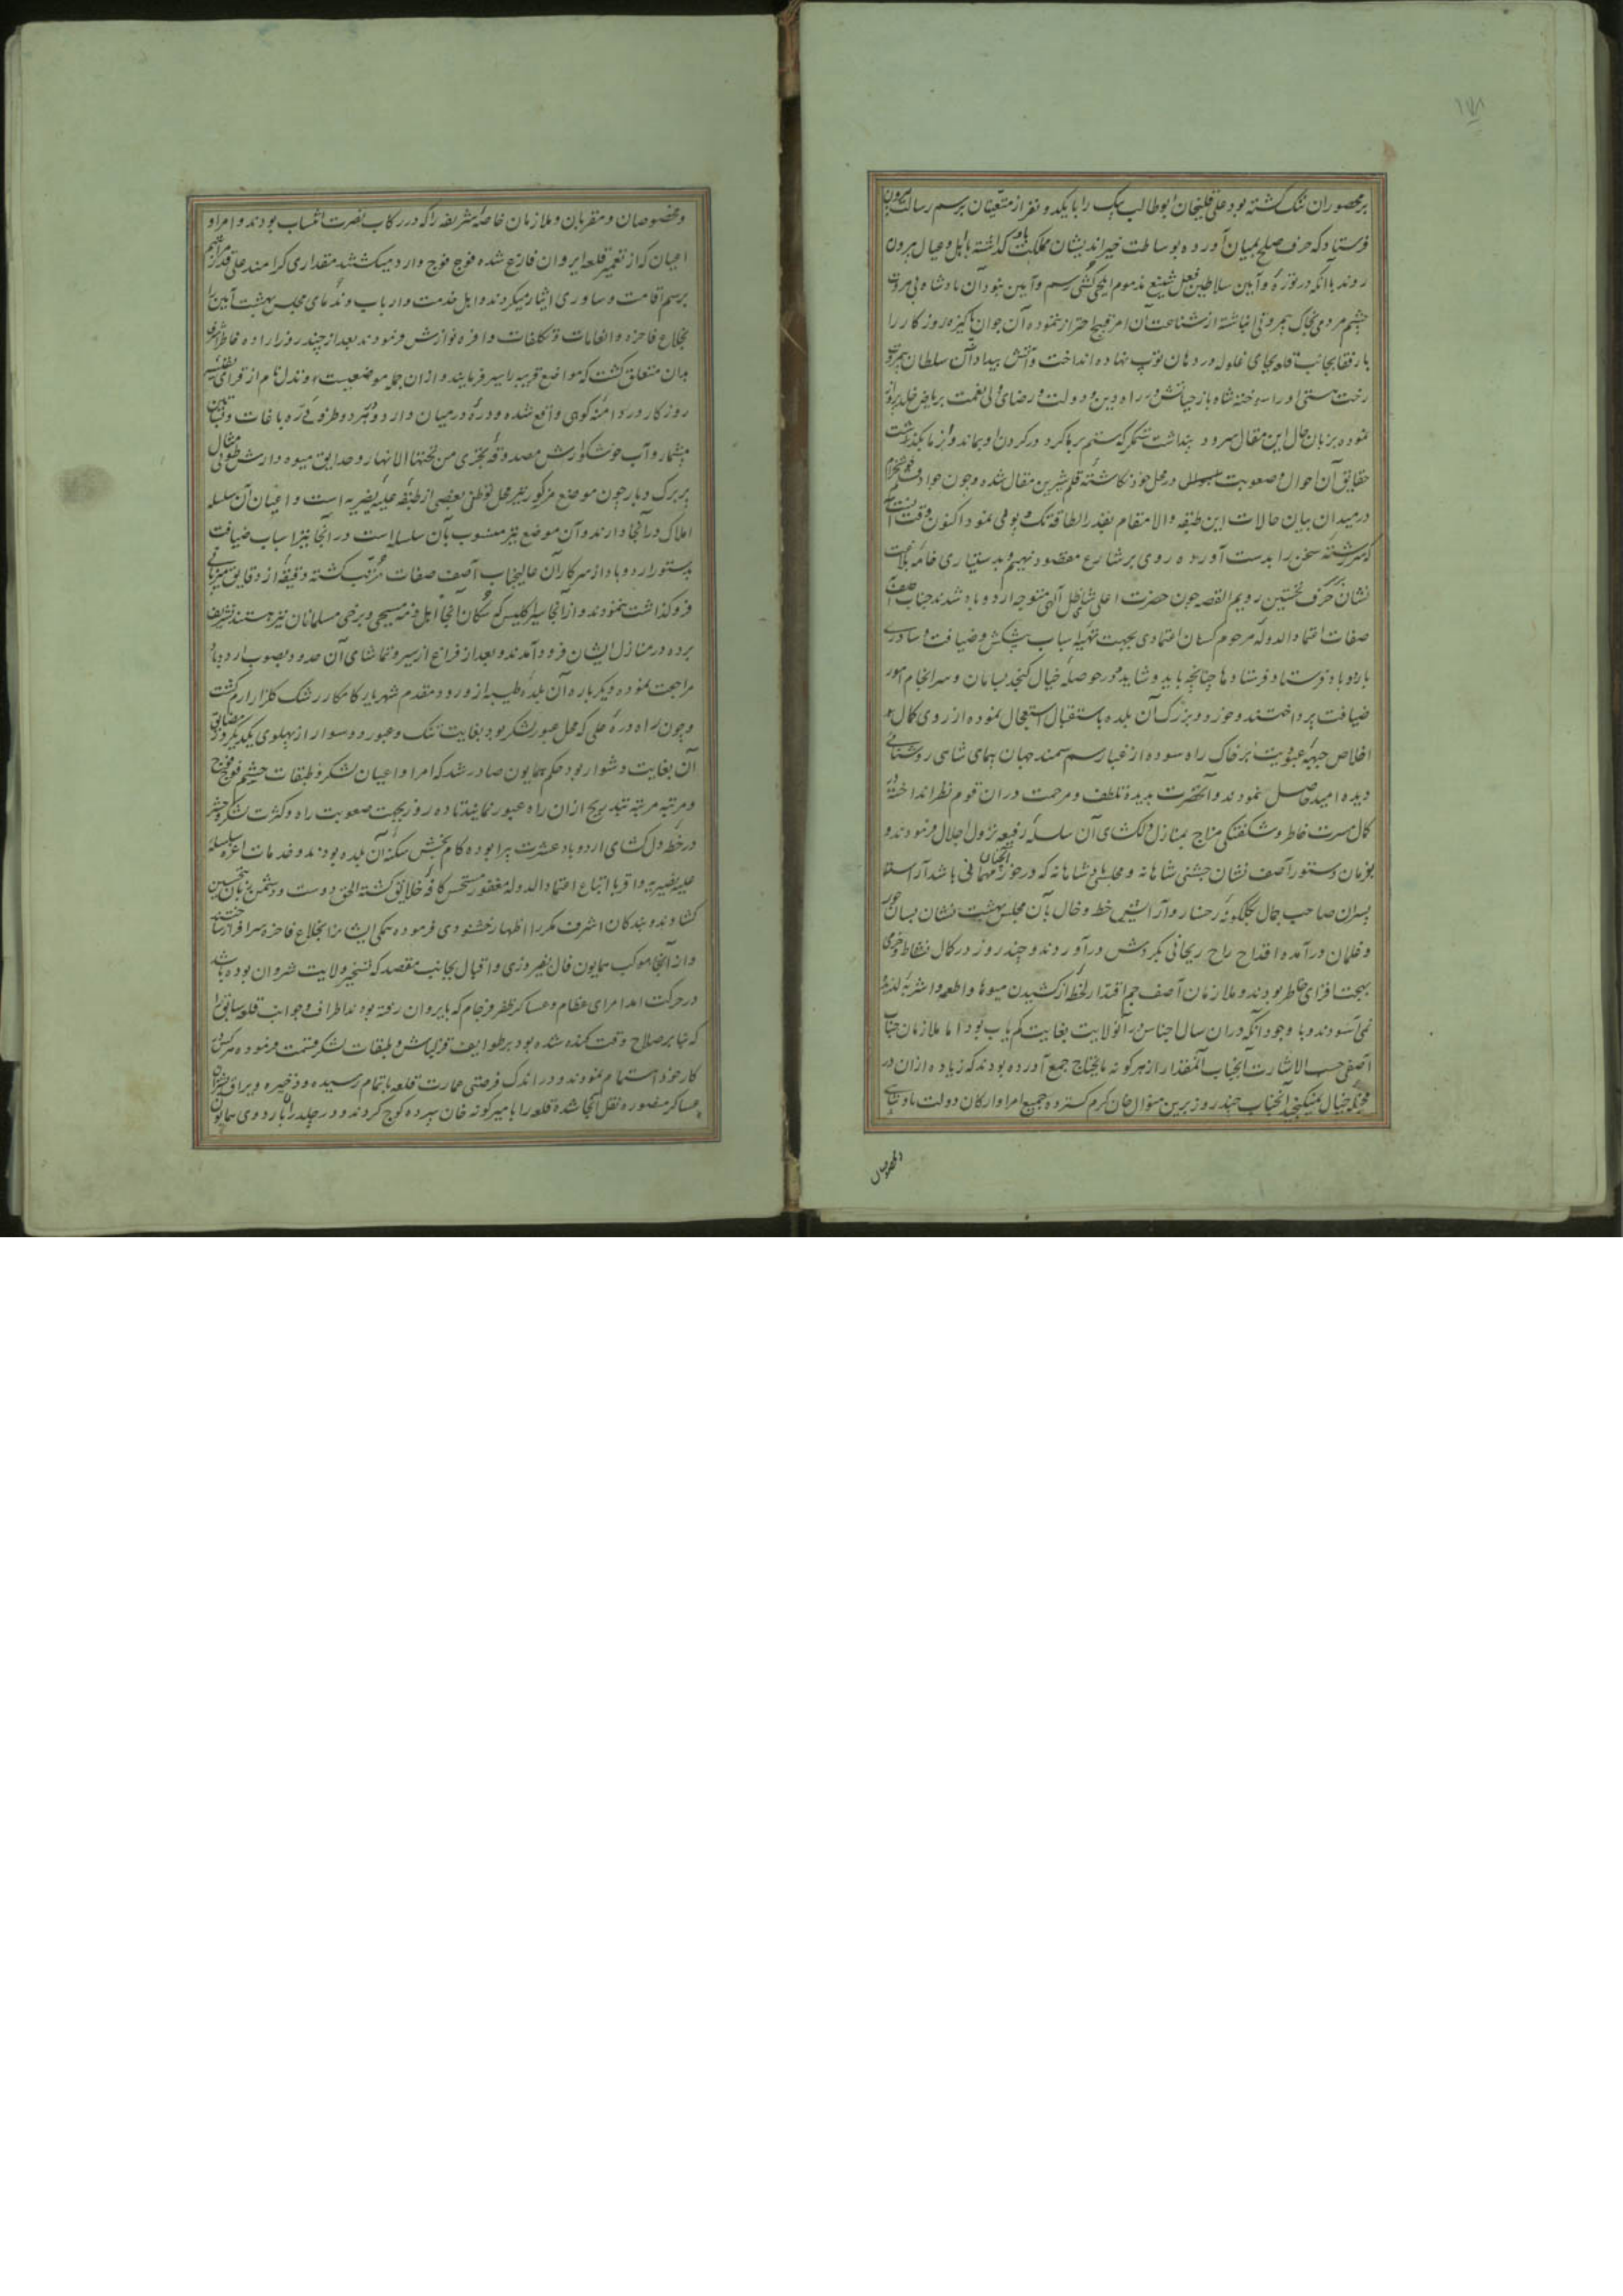 ۱۷۸
بر محصوران تنگ گشته بود علی قلیخان ابوطالب بیک را با یکدو نفر از متعینان برسم رسالت بیرون
فرستاد که حرف صلح بمیان آورده بوساطت خیراندیشان مملکت باو گذاشته با اهل و عیال بیرون
روند با آنکه در توره و آیین سلاطین فعل شنیع مذموم ایلچی کشی رسم و آیین نبود آن پادشاه بی مروت
چشم مردمی بخاک بیمروتی انباشته از شناعت آن امر قبیح احتراز ننموده آن جوان پاکیزه روزگار را
با رفقا بجانب قلعه بجای غلوله در دهان توپ نهاده انداخت و آتش بیداد آن سلطان بیمروت
رخت هستی او را سوخته شاه باز حیاتش در راه دین و دولت و رضای ولی نعمت بریاض خلد پرواز
نموده بزبان حال این مقال سرود پنداشت ستمگر که ستم بر ما کرد در گردن او بماند و از ما بگذشت
حقایق آن احوال و صعوبت در محل خود نگاشته قلم شیرین مقال شده و چون جواد قلم
در میدان بیان حالات این طبقه والا مقام بقدر الطاقه تک و پویی نمود اکنون وقت است
که سررشته سخن را بدست آورده روی بر شارع مقصود نهیم و بدستیاری خامه بلاغت
نشان بحرف نخستین رویم القصه چون حضرت اعلی شاهی ظل آلهی متوجه اردوباد شدند جناب آصف
صفات اعتمادالدوله مرحوم کسان اعتمادی بجهت تهیه اسباب پیشکش و ضیافت و ساوری
باردوباد فرستاد و فرستادها چنانچه باید و شاید و در حوصله خیال گنجد بسامان و سرانجام امور
ضیافت پرداختند و خورد و بزرگ آن بلده باستقبال استعجال نموده از روی کمال
اخلاص جبهه عبودیت بر خاک راه سوده از غبار سم سمند جهان پیمای شاهی روشنائی
دیده امید حاصل نمودند و آنحضرت بدیده تلطف و مرحمت در ان قوم نظر انداخته در
کمال مسرت خاطر و شگفتگی مزاج بمنازل دلگشای آن سلسله رفیعه نزول اجلال فرمودند و
بفرمان دستور آصف نشان جشنی شاهانه و مجلسهای شاهانه که در خور آنچنان مهمانی باشد آراسته
پسران صاحب جمال بگلگونه رخسار و آرایش خط و خال بآن مجلس بهشت نشان بسان حور
و غلمان درآمده اقداح راح ریحانی بگردش درآوردند و چند روز در کمال نشاط و خرمی
بهجت افزای خاطر بودند و ملازمان آصف جم اقتدار لحظه از کشیدن میوها و اطعمه و اشربه لذیذه
نمی آسودند و با وجود آنکه دران سال اجناس در آنولایت بغایت کم یاب بود اما ملازمان جناب
آصفی حسب الاشارت آنجناب آنمقدار از هر گونه مایحتاج جمع آورده بودند که زیاده از ان در
مخیله خیال نمیگنجید آنجناب چند روز برین منوال خان کرم گسترده جمیع امرا و ارکان دولت پادشاهی
و مخصوصان
و مخصوصان و مقربان و ملازمان خاصه شریفه را که در رکاب نصرت انتساب بودند و امرا و
اعیان که از تعمیر قلعه ایروان فارغ شده فوج فوج وارد میگشتند مقداری گرامند علی قدر مراتبهم
برسم اقامت و ساوری ایثار میکردند و اهل خدمت و ارباب و ندمای مجلس بهشت آیین را
بخلاع فاخره و انعامات و تکلفات وافره نوازش فرمودند بعد از چند روز اراده خاطر اشرف
بدان متعلق گشت که مواضع قریبه را سیر فرمایند و از ان جمله موضعیست وندل نام از قرای
روزگار در دامنه کوهی واقع شده و دره در میان دارد و هر دو طرف دره باغات
بیشمار و آب خوشگوارش مصدوقه تجری من تحتها الانهار و حدایق میوه دارش طوبی مثال
پر برگ و بار چون موضع مزکور نیز محل توطن بعضی از طبقه علیه نصیریه است و اعیان آن سلسله
املاک در آنجا دارند و آن موضع نیز منسوب بآن سلسله است در آنجا نیز اسباب ضیافت
بدستور اردوباد از سرکار آن عالیجناب آصف صفات مرتب گشته دقیقه از دقایق میزبانی
فروگذاشت ننمودند و از آنجا بسیر اکلیس که سکان آنجا اهل ذمه مسیحی و برخی مسلمانان نیز هستند تشریف
برده در منازل ایشان فرود آمدند و بعد از فراغ از سیر و تماشای آن حدود بصوب اردوباد
مراجعت نموده دیگر باره آن بلده طیبه از ورود مقدم شهریار کامکار رشک گلزار ارم گشت
و چون راه دره علی که محل عبور لشکر بود بغایت تنگ و عبور دو سوار از پهلوی یکدیگر در مضایق
آن بغایت دشوار بود حکم همایون صادر شد که امرا و اعیان لشکر و طبقات حشم فوج فوج
و مرتبه مرتبه بتدریج از ان راه عبور نمایند تا ده روز بجهت صعوبت راه و کثرت لشکر و حشر
در خطه دلگشای اردوباد عشرت پیرا بوده کام بخش سکنه آن بلده بودند و خدمات اعزه سلسله
علیه نصیریه و اقربا اتباع اعتمادالدوله مغفور مستحسن کافه خلایق گشته الحق دوست و دشمن زبان بتحسین
گشاوند و بندگان اشرف مکررا اظهار خشنودی فرموده همگی ایشانرا بخلاع فاخره سرافراز ساختند
و از آنجا موکب همایون فال بفیروزی و اقبال بجانب مقصد که تسخیر ولایت شروان بوده باشد
در حرکت آمد امرای عظام و عساکر ظفر فرجام که بایروان رفته بودند اطراف و جوانب قلعه سابق را
که بنا بر صلاح وقت کنده شده بود بر طوایف قزلباش و طبقات لشکر قسمت فرموده هر کس در
کار خود اهتمام نمودند و در اندک فرصتی عمارت قلعه باتمام رسیده و ذخیره و یراق
عساکر منصوره نقل آنجا شده قلعه را بامیرگونه خان سپرده کوچ کردند و در باردوی همایون